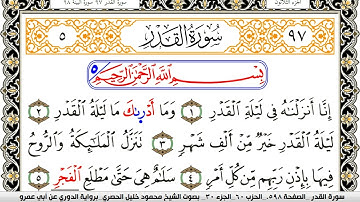 الجزء الثلاثون
سورة القدر ٩٧ سورة البينة ٩٨
٥ سُورَةُ الْقَدْرِ ٩٧
بِسْمِ اللَّهِ الرَّحْمَٰنِ الرَّحِيمِ ٥
إِنَّا أَنزَلْنَهُ فِي لَيْلَةِ الْقَدْرِ ١ وَمَا أَدْرِىٰكَ مَا لَيْلَةُ الْقَدْرِ ٢
لَيْلَةُ الْقَدْرِ خَيْرٌ مِنْ أَلْفِ شَهْرٍ ٣ تَنَزَّلُ الْمَلَٰٓئِكَةُ وَالرُّوحُ
فِيهَا بِإِذْنِ رَبِّهِم مِن كُلِّ أَمْرٍ ٤ سَلَٰمٌ هِيَ حَتَّىٰ مَطْلَعِ الْفَجْرِ ٥
سورة القدر _ الصفحة ٥٩٨ _ الحزب ٦٠ _ الجزء ٣٠ _ بصوت الشيخ محمود خليل الحصري برواية الدوري عن أبي عمرو